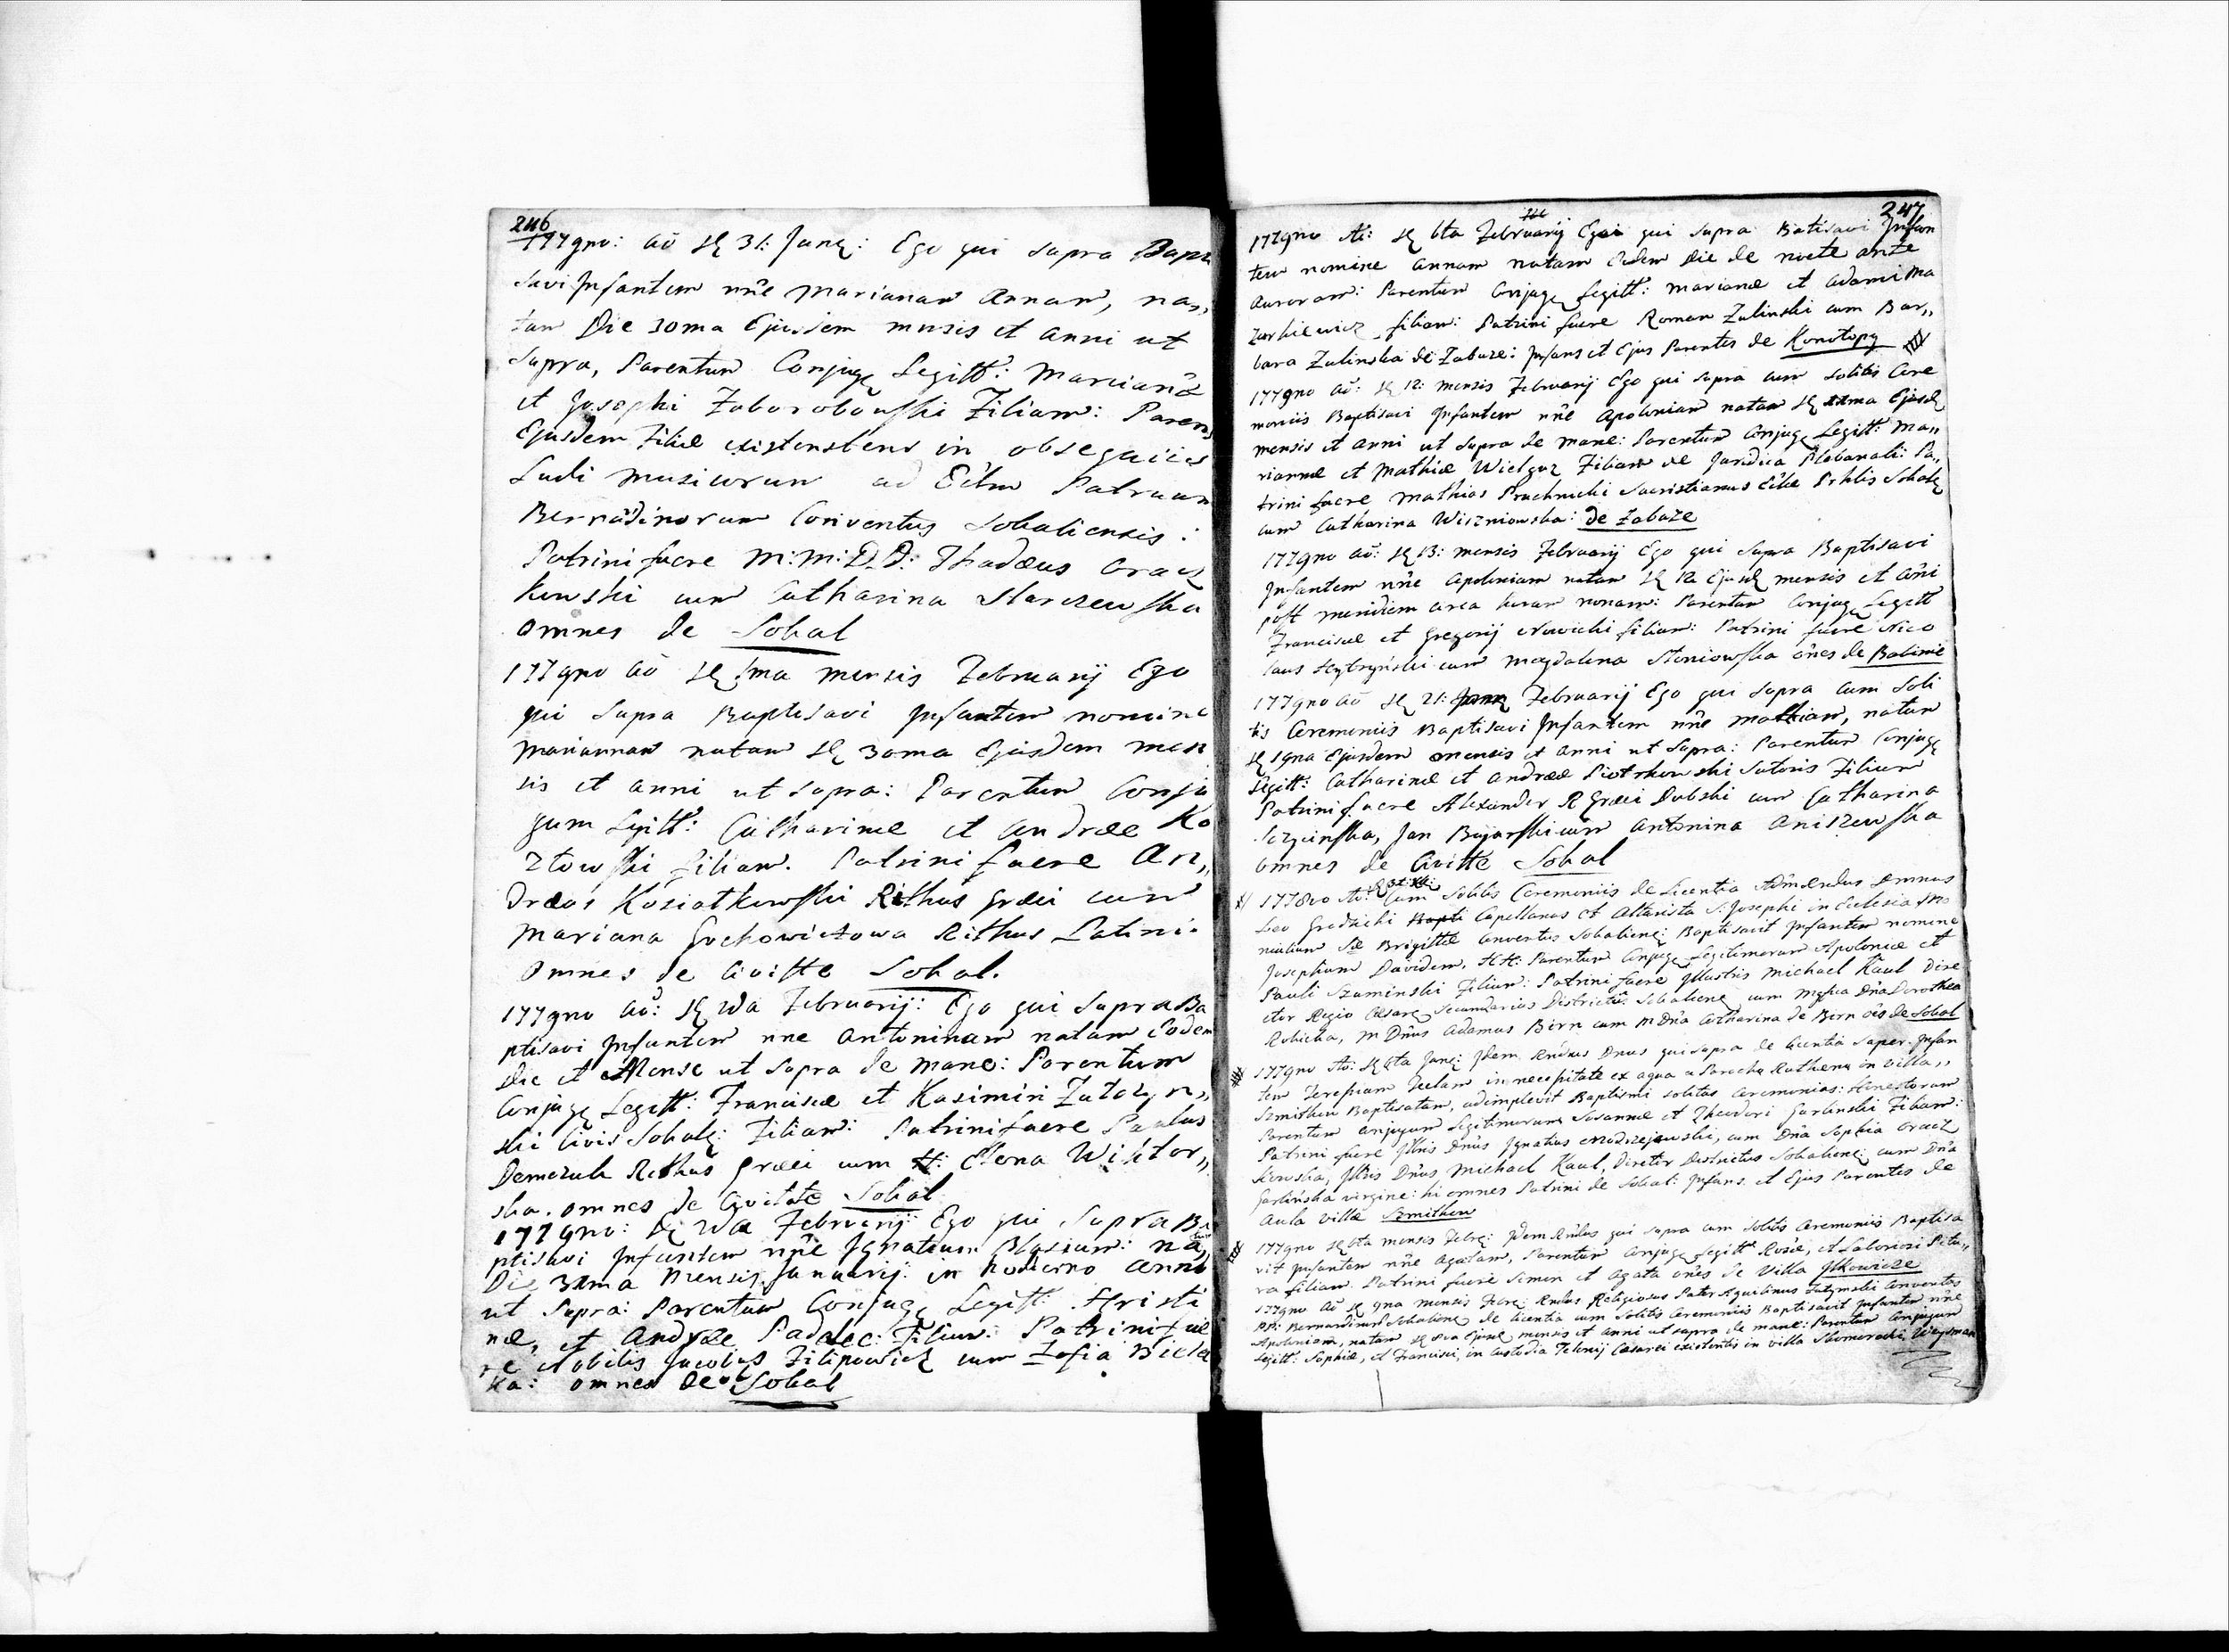 246
177gno: Aō d 31: Janȩ: Ego qui supra Bapti
savi Infantem nn̄e Mariannam Annam, na„
tam Die 30ma Ejusdem mensis et anni ut
supra, Parentum Conjugȩ Legitt: Mariannæ
et Josephi Zaborobowski Filiam: Parens
Ejusdem Filiæ existens in obsequiis
Ludi Musicorum ad Ecl̄m Patrum
Bernadinorum Conventus Sokaliensis:
Patrini fuere M: M: D.D: Thadæus Oracz
kowski cum Catharina Starzewska
omnes de Sokal
177gno Aō d 1ma mensis Februarij Ego
qui supra Baptisavi Infantem nomine
Mariannam natam d 30ma Ejusdem men
sis et anni ut supra: Parentum Conju
gum Legitt: Catharinæ et Andreæ Ko
złowski filiam. Patrini fuere An„
dreas Koziatkowski Rithus Græci cum
Mariana Gochowiczowa Rithus Latini.
omnes de Civitte Sokal.
177gno Aō: d 2da Februarij: Ego qui supra Ba
ptisavi Infantem nne Antoninam natam Eodem
Die et Mense ut supra de mane: Parentum
Conjugȩ Legitt: Franciscæ et Kasimiri Zatorzyn„
ski Civis Sokalȩ: Filiam: Patrini fuere Paulus
Demczuk Rithus Græci cum H: Elena Wiktor„
ska. omnes de Civitate Sokal
177gno: d 2da Februarij Ego qui supra Ba
ptisavi Infantem nn̄e Ignatium Blasium: na„tum
Die 31ma Mensis Januarij: in hodierno anno
ut supra: Parentum Conjugȩ Legitt: Christi
næ, et Andreæ Padalec: Filium: Patrini fue
re Nobilis Jacobus Filipowicz cum Zofia Biela
ka: omnes de Sokal
247
177gno Aō: d 6ta Februarij Ego qui supra Batisavi Infan
tem nomine Annam natam Eodem Die de nocte ante
Auroram: Parentum Conjugȩ Legitt: Mariannæ et Adami Ma
zurkiewicz filiam: Patrini fuere Roman Zulinski cum Bar„
bara Zulinska de Zabuze: Infans et Ejus Parentes de Konotopy
177gno Aō: d 12: mensis Februarij Ego qui supra cum solitis Cere
moniis Baptisavi Infantem nn̄e Apoloniam natam d 11ma Ejusd
mensis et anni ut supra de mane: Parentum Conjugȩ Legitt: Ma„
riannæ et Mathiæ Wielgoz Filiam de Juridica Plebanali: Pa„
trini fuere Mathias Pruchnicki Sacristianus Ec̄læ Prhlis Sokalȩ
cum Catharina Wiszniowska: de Zabuze
177gno Aō: d 13: mensis Februarij Ego qui supra Baptisavi
Infantem nn̄e Apoloniam natam d 12 Ejusd mensis et an̄i
post meridiem circa horam nonam: Parentum Conjugȩ Legitt
Franciscæ et Gregorij Nowicki filiam: Patrini fuere Nico
laus Hytryński cum Magdalena Słoniowska on̄es de Babinie
177gno Aō d 21: Februarij Ego qui supra cum soli
tis Ceremoniis Baptisavi Infantem nn̄e Mathiam, natum
d 19na Ejusdem mensis et anni ut supra: Parentum Conjugȩ
Legitt: Catharinæ et Andreæ Piotrkowski Sutoris Filium
Patrini fuere Alexander R Græci Dubski cum Catharina
Jan Bujarski cum Antonina Aniszewska
omnes de Civitte Sokal
1778vo Aō: d 31 Xb: Cum solitis Ceremoniis de Licentia Admdrndus Domnus
Leo Grodzicki Capellanus et Altarista S: Josephi in Ecclesia Mo
nialium Sæ Brigittæ Conventus Sokaliensȩ: Baptisavit Infantem nomine
Josephum Davidem, HH: Parentum Conjugȩ Legitimorum Apoloniæ et
Pauli Szuminski Filium: Patrini fuere Illustris Michael Kaul Dire
ctor Regio Cæsareȩ Secundarius Districtûs Sokaliensȩ cum Mgfica Dn̄a Dorothea
Rubicka, M Dn̄us Adamus Birn cum M Dn̄a Catharina de Birn ōes de Sokal
177gno Aō: d 6ta Janȩ: Idem Rndus Dnus qui supra de licentia super. Infan
tem Teresiam Teclam in necessitate ex aqua a Parocho Rutheno in villa„
Szmitkow Baptisatam, adimplevit Baptismi solitas Ceremonias: Honestorum
Parentum Conjugum Legitimorum Susannæ et Theodori Garlinski Filiam:
Patrini fuere Illris Dnûs Ignatius Modrzejewski, cum Dn̄a Sophia Oracz
kowska, Illris Dn̄us Michael Kaul, Diretor Districtus Sokaliensȩ: cum Dn̄a
Garlińska virgine: hi omnes Patrini de Sokal: Infans. et Ejus Parentes de
Aula villæ Szmitkow
177gno d 6ta mensis Febrȩ: Idem Rndus qui supra cum solitis Ceremoniis Baptisa
vit Infantem nn̄e Agatam, Parentum Conjugȩ Legitt Rosæ, et Laboriosi Pitu„
ra filiam. Patrini fuere Simon et Agata on̄es de villa Ilkowicze
177gno Aō d 9na mensis Febrȩ: Rndus Religiosus Pater Aquilinus Conventus
PP: Bernardinorū Sokaliensȩ de licentia cum solitis Ceremoniis Baptisavit Infantem nn̄e
Apoloniam, natam d 8va Ejusd mensis et anni ut supra de mane: Parentum Conjugum
Legitt: Sophiæ, et Francisci, in Custodia Telonij Cæsarei existentis in villa Skomorochi, Waysman